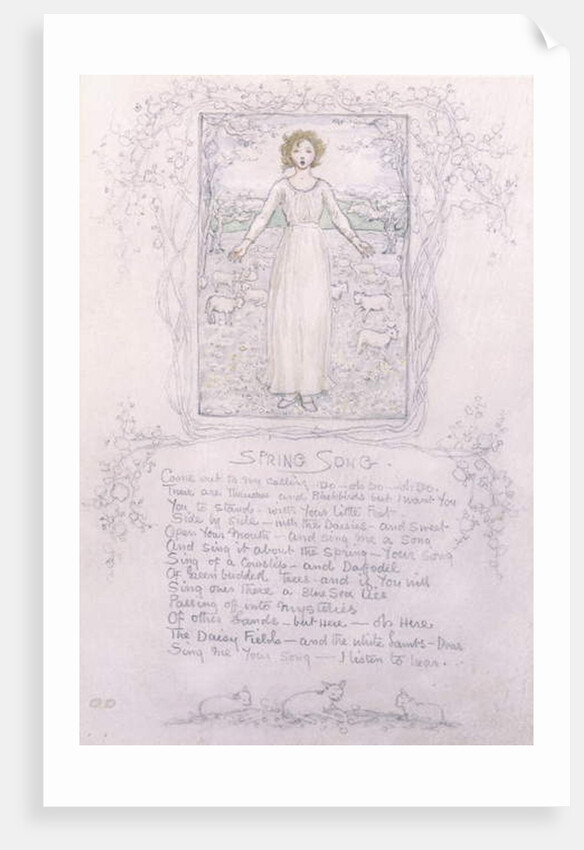 SPRING SONG.
Come out to my calling. Do - oh Do - oh Do.
There are Thrushes and Blackbirds but I want You
You to stand - with Your Little Feet -
Side by side - with the Daisies - and Sweet -
Open Your Mouth - and sing me a Song
And sing it about the Spring - Your Song
Sing of a Cowslip - and Daffodil
Of Green budded Trees - and if You will
Sing over There a Blue Sea Lies
Passing off into Mysteries
Of other Lands - but Here - oh Here
The Daisy Fields - and the White Lambs - Dear
Sing me Your Song - I listen to hear.